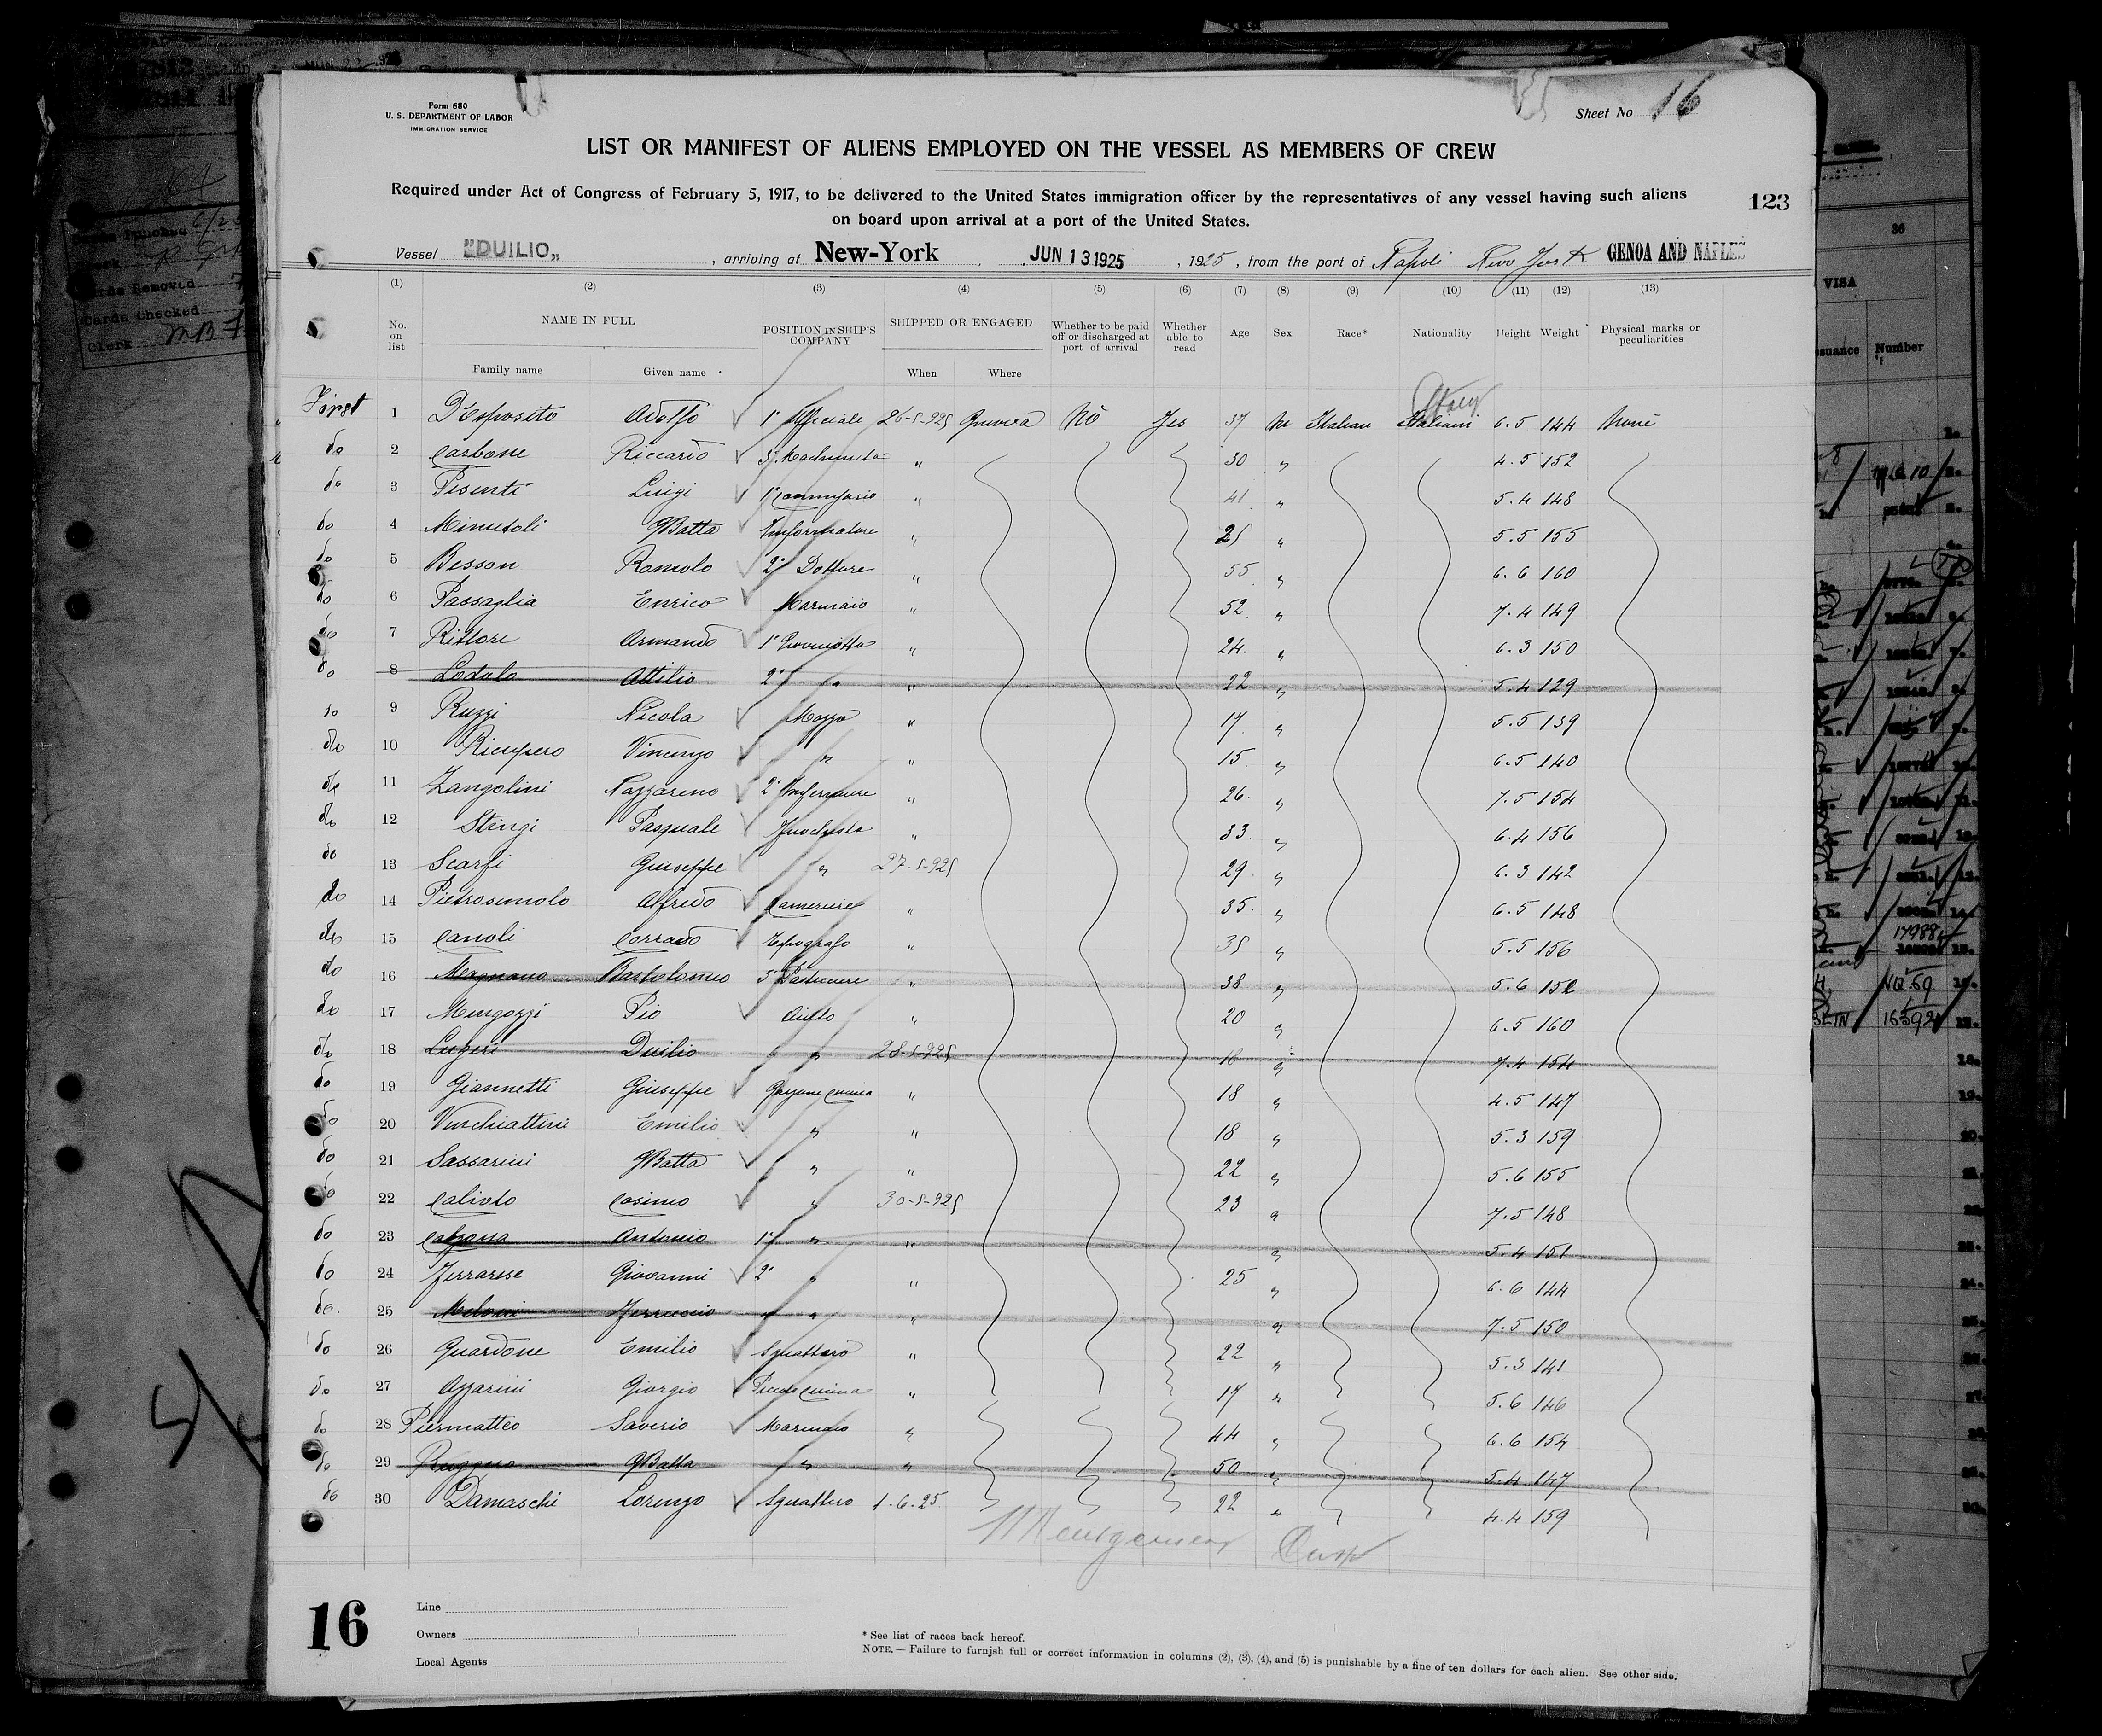 Form 680
U. S. DEPARTMENT OF LABOR
IMMIGRATION SERVICE
Sheet No 16
LIST OR MANIFEST OF ALIENS EMPLOYED ON THE VESSEL AS MEMBERS OF CREW
Required under Act of Congress of February 5, 1917, to be delivered to the United States immigration officer by the representatives of any vessel having such aliens
on board upon arrival at a port of the United States.
123
Vessel "DUILIO„ , arriving at New-York , JUN 13 1925 , 1925 , from the port of Napoli New York GENOA AND NAPLES
(1) (2) (3) (4) (5) (6) (7) (8) (9) (10) (11) (12) (13)
No. on list NAME IN FULL Family name Given name POSITION IN SHIP'S COMPANY SHIPPED OR ENGAGED When Where Whether to be paid off or discharged at port of arrival Whether able to read Age Sex Race* Nationality Height Weight Physical marks or peculiarities
Italy
First 1 D'Esposito Adolfo 1° Ufficiale 26-5-925 Genova No Yes 37 M Italian Italian 6.5 144 None
do 2 Carbone Riccardo 3° Macchinista „ 30 „ 4.5 152
do 3 Pisenti Luigi 1° Commissario „ 41 „ 5.4 148
do 4 Minutoli GBatta „ 25 „ 5.5 155
do 5 Besson Romolo 2° Dottore „ 55 „ 6.6 160
do 6 Passaglia Enrico Marinaio „ 52 „ 7.4 149
do 7 Rittore Armando 1° Giovinotto „ 24 „ 6.3 150
do 8 Lodolo Attilio 2° „ „ 22 „ 5.4 129
do 9 Ruzzi Nicola Mozzo „ 17 „ 5.5 139
do 10 Ricupero Vincenzo „ „ 15 „ 6.5 140
do 11 Zangolini Nazzareno 2° Infermiere „ 26 „ 7.5 154
do 12 Stingi Pasquale Fuochista „ 33 „ 6.4 156
do 13 Scarfi Giuseppe „ 27-5-925 29 „ 6.3 142
do 14 Pietrosemolo Alfredo Cameriere „ 35 „ 6.5 148
do 15 Canoli Corrado Tipografo „ 35 „ 5.5 156
do 16 Magnano Bartolomeo 3° Pasticciere „ 38 „ 5.6 152
do 17 Mingozzi Pio Aiuto „ 20 „ 6.5 160
do 18 Luzeri Duilio „ „ 28-5-925 18 „ 7.4 154
do 19 Giannetti Giuseppe Garzone cucina „ 18 „ 4.5 147
do 20 Vinchiatturi Emilio „ „ 18 „ 5.3 159
do 21 Sassarini GBatta „ „ 22 „ 5.6 155
do 22 Calivto Cosimo „ 30-5-925 23 „ 7.5 148
do 23 Antonio 1° „ „ „ 5.4 151
do 24 Ferrarese Giovanni 2° „ „ 25 „ 6.6 144
do 25 Meloni Ferruccio „ „ „ „ 7.5 150
do 26 Guardone Emilio Sguattero „ 22 „ 5.3 141
do 27 Azzarini Giorgio cucina „ 17 „ 5.6 146
do 28 Piermatteo Saverio Marinaio „ 44 „ 6.6 154
do 29 Ruggero GBatta „ „ 50 „ 5.4 147
do 30 Damaschi Lorenzo Sguattero 1.6.25 22 „ 4.4 159
16
Line
Owners
Local Agents
* See list of races back hereof.
NOTE. — Failure to furnish full or correct information in columns (2), (3), (4), and (5) is punishable by a fine of ten dollars for each alien. See other side.
Cards Removed
Cards Checked
Clerk MB
36
VISA
Number
17988
NQ 69
16592